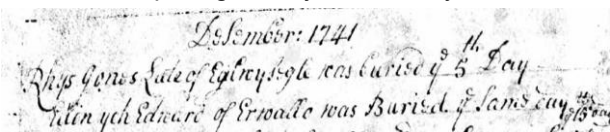 Desember: 1741
Rhys Jones Late of Eglwysegle was buried yᵉ 5th Day
Ellin ych Edward of Erwallo was Buried yᵉ Same day